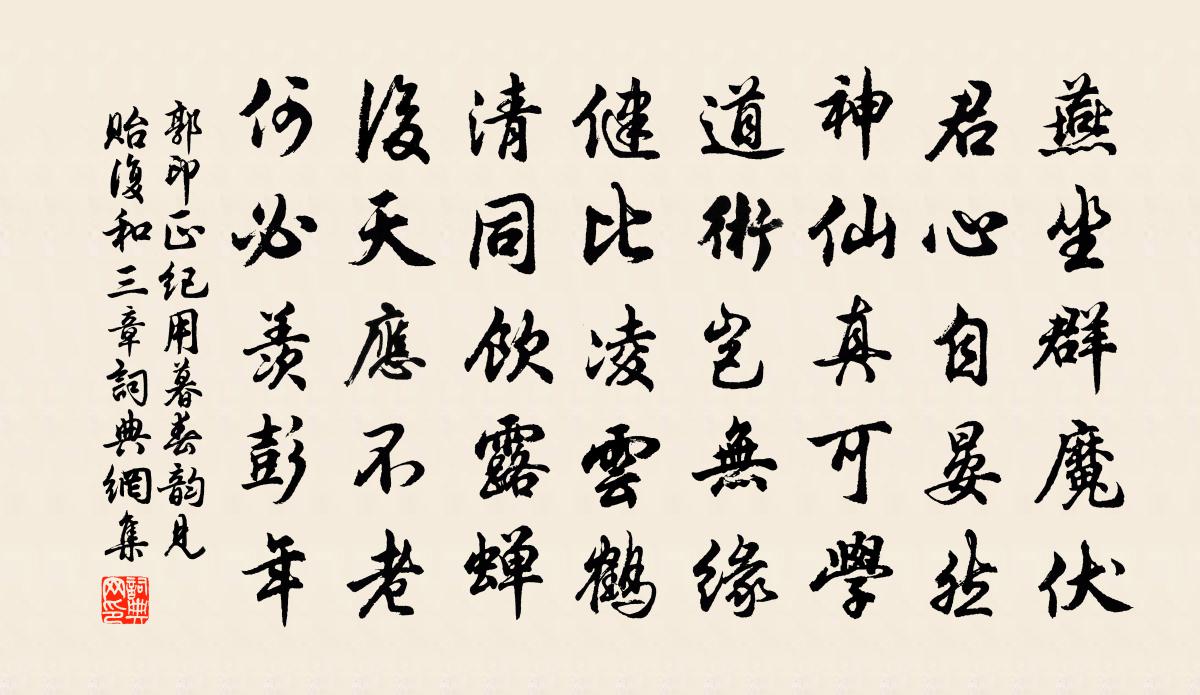 燕坐群魔伏
君心自晏然
神仙真可學
道術豈無緣
健比凌雲鶴
清同飲露蟬
後天應不老
何必羨彭年
郭印正紀用暮春韵見
貽復和三章詞典網集
詞典网印